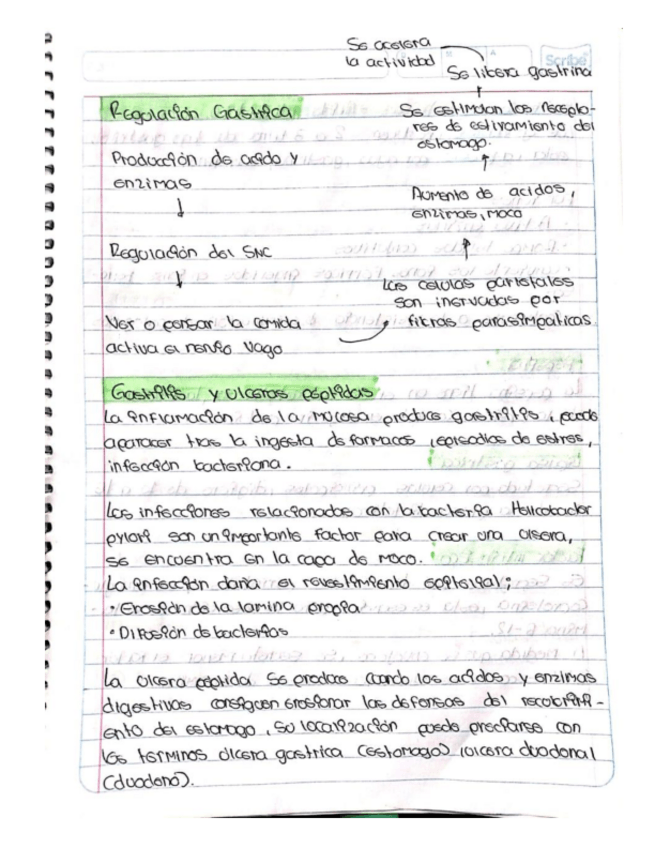 Se acelera
la actividad
Scribe
Se libera gastrina
Regulación Gastrica
Se estimulan los recepto-
res de estiramiento del
estomago.
Producción de acido y
enzimas
Aumento de acidos,
enzimas, moco
Regulación del SNC
Las celulas parietales
son inervadas por
fibras parasimpaticas
Ver o pensar la comida
activa el nervio vago
Gastritis y ulceras péptidas
La inflamación de la mucosa produce gastritis, puede
aparecer tras la ingesta de farmacos, episodios de estres,
infección bacteriana.
Las infecciones relacionadas con la bacteria Helicobacter
pylori son un importante factor para crear una ulsera,
se encuentra en la capa de moco.
La infección daña el revestimiento epitelial;
• Erosión de la lamina propia
• Difusión de bacterias
La ulcera péptida se produce cuando los acidos y enzimas
digestivas consiguen erosionar las defensas del recubrimi-
ento del estomago, Su localización puede precisarse con
los terminos ulcera gastrica (estomago) ulcera duodenal
(duodeno).